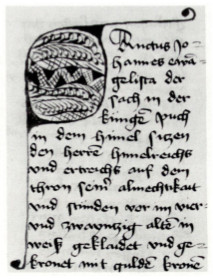 Sanctus Jo-
hannes ewā-
gelista der
sach in der
künge puch
in dem himel sitzen
den herrē himelreichs
und ertreichs auf dem
thron seinʳ almechtikait
und stunden vor im vier
und zwaintzig altē in
weiß geklaidet und ge-
krönet mit guldē kronē